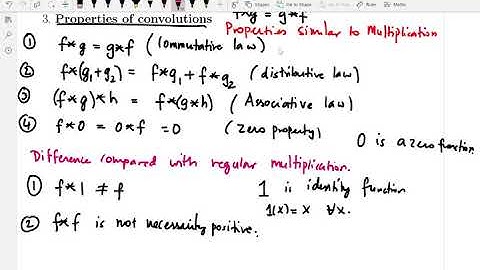 3. Properties of convolutions
f*g = g*f
Properties similar to Multiplication
① f*g = g*f (Commutative law)
② f*(g₁+g₂) = f*g₁ + f*g₂ (distributive law)
③ (f*g)*h = f*(g*h) (Associative law)
④ f*0 = 0*f = 0 (Zero property)
0 is a zero function.
Difference compared with regular multiplication.
① f*1 ≠ f
1 is identity function
1(x) = x ∀x.
② f*f is not necessarily positive.